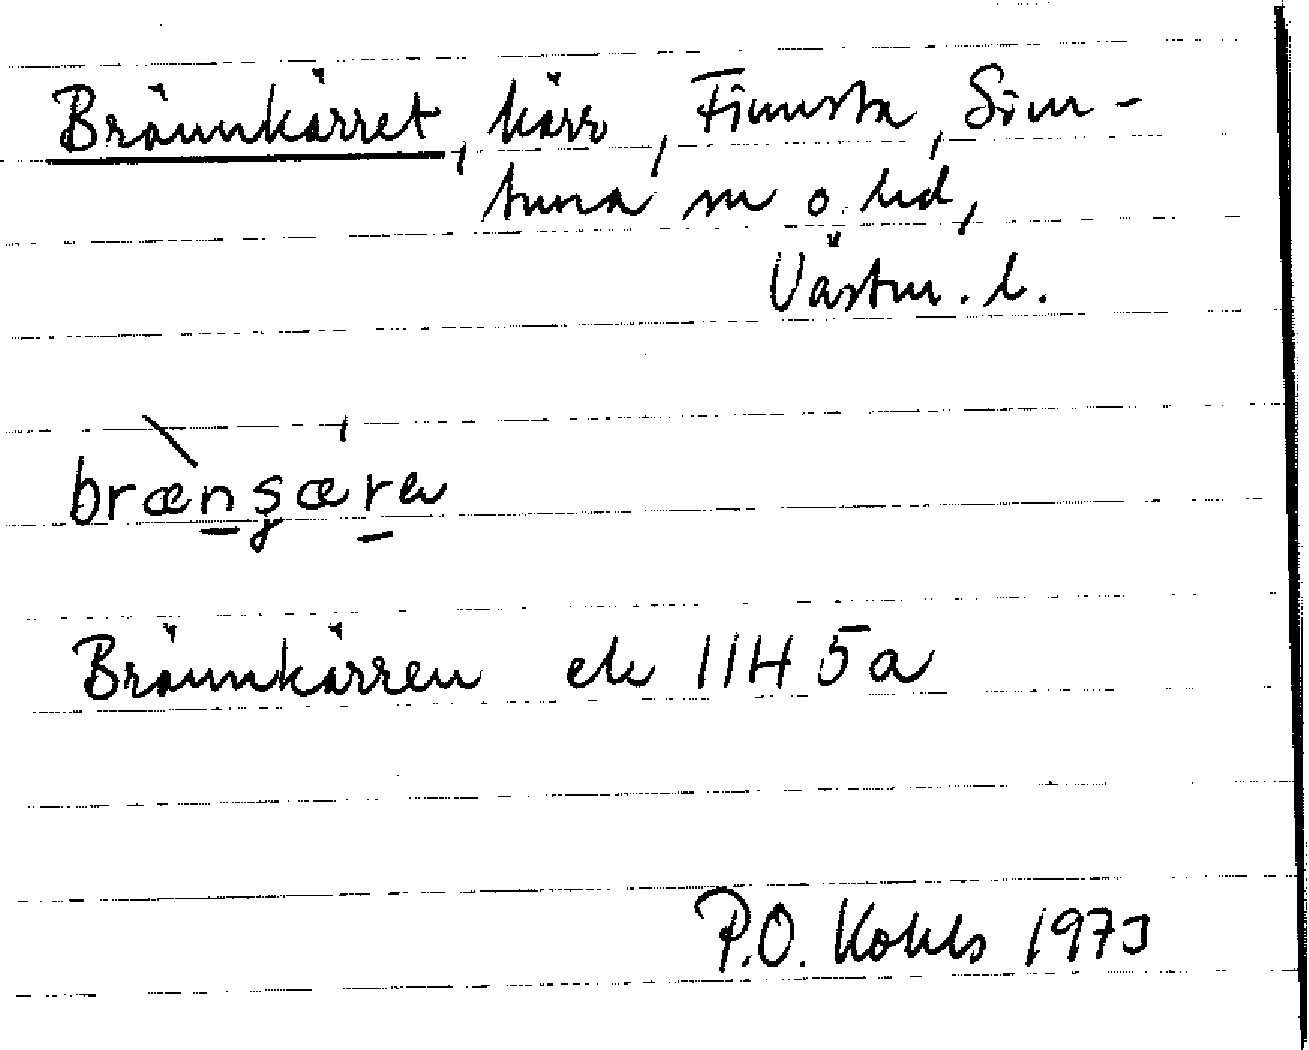 Brännkärret, kärr, Finnsta, Sim-
tuna sn o hd,
Västm. l.
brænʂæra
Brännkärren ek 11H 5a
P.O. Kohls 1973